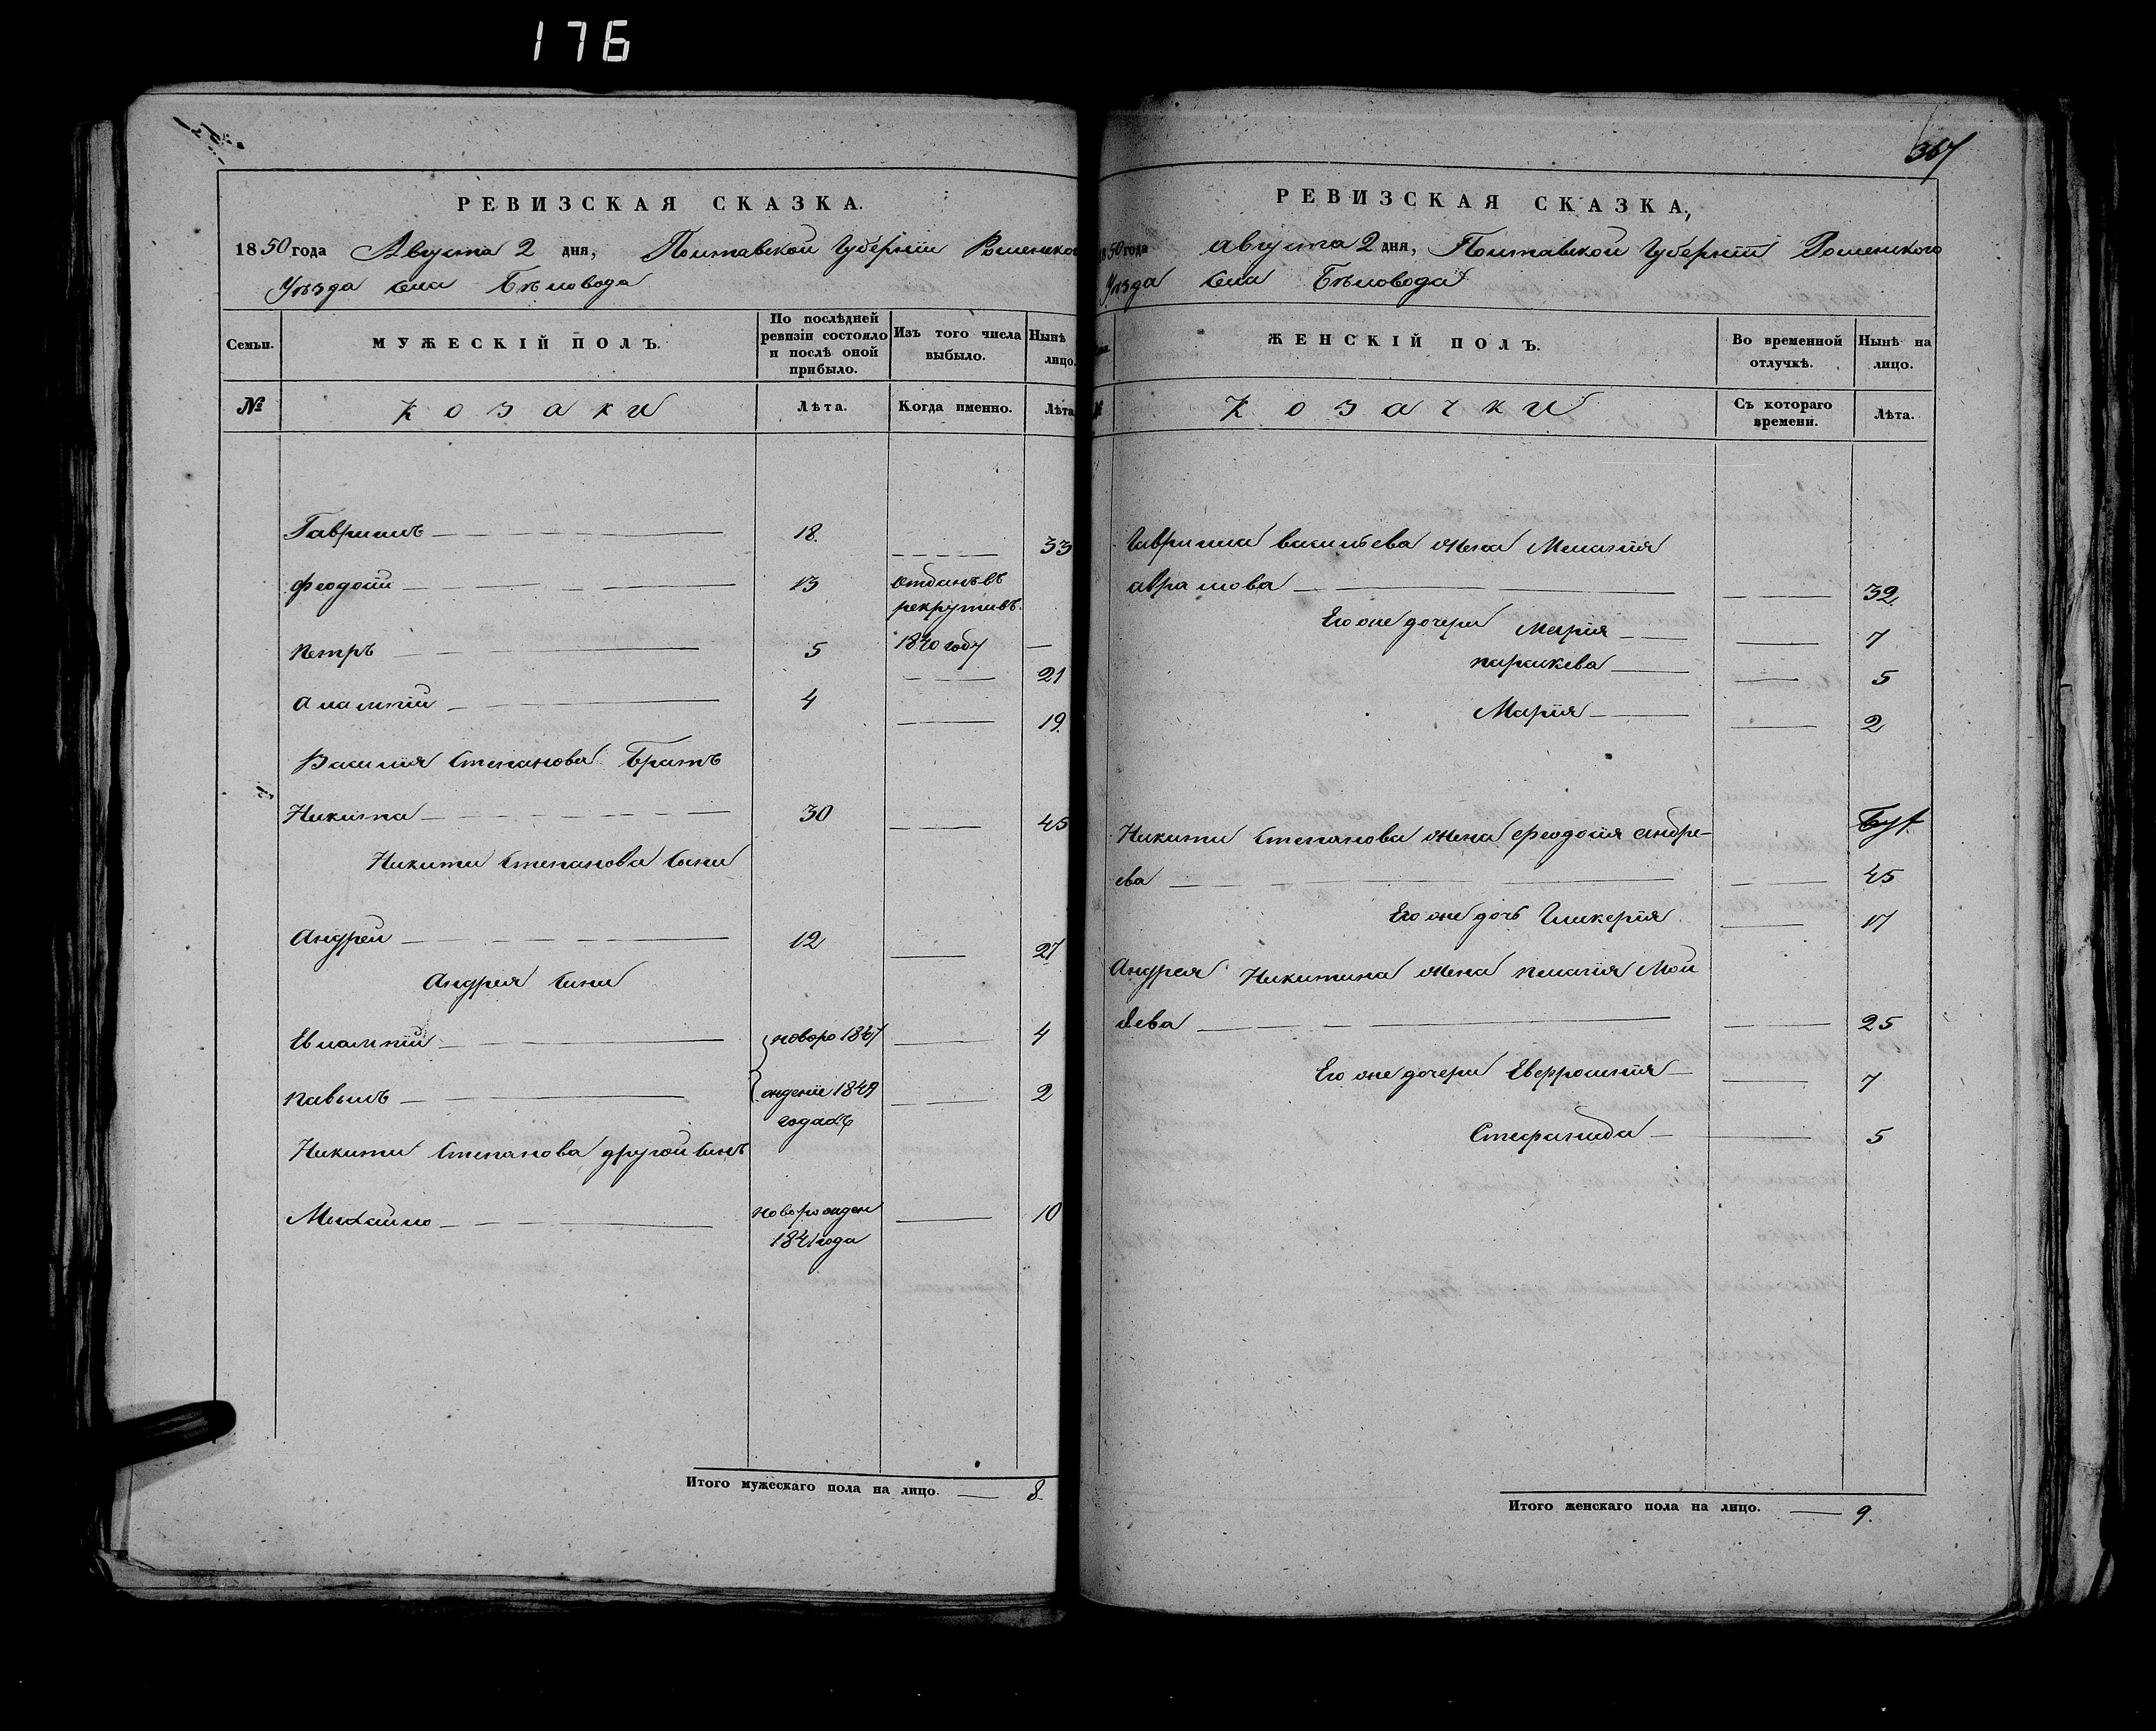 176
РЕВИЗСКАЯ СКАЗКА.
1850 года Августа 2 дня, Полтавской Губерніи Роменского
Уѣзда села Бѣловода
Семьи.
МУЖЕСКІЙ ПОЛЪ.
По послѣдней ревизіи состояло и послѣ оной прибыло.
Изъ того числа выбыло.
Нынѣ лицо.
№
Козаки
Лѣта.
Когда именно.
Лѣта
Гаврыилъ 18. 33
Феодосій 13 отданъ въ
рекрути въ
1840 году
Петръ 5 21
Алампій 4 19.
Василія Степанова братъ
Никита 30 45
Никити Степанова сыни
Андрей 12 27
Андрея сини
Евлампій новоро 1847 4
Павылъ ждение 1849 2
годахъ
Никити Степанова другой синъ
Михайло новорожден 10
1841 года
Итого мужескаго пола на лицо. 8.
367
РЕВИЗСКАЯ СКАЗКА,
1850 года августа 2 дня, Полтавской Губерніи Роменского
Уѣзда села Бѣловода
ЖЕНСКІЙ ПОЛЪ.
Во временной отлучкѣ.
Нынѣ на лицо.
№
Козачки
Съ котораго времени.
Лѣта.
Гаврыила васильева жена Меланія
аврамова 32
Его же дочери Марія 7
параскева 5
Марія 2
Никити Степанова жена феодосія андре-
ева 45
Его же дочь Гликерія 17
Андрея Никитина жена пелагія Мои
сеева 25
Его же дочери Евфросинія 7
Стефанида 5
Итого женскаго пола на лицо. 9.